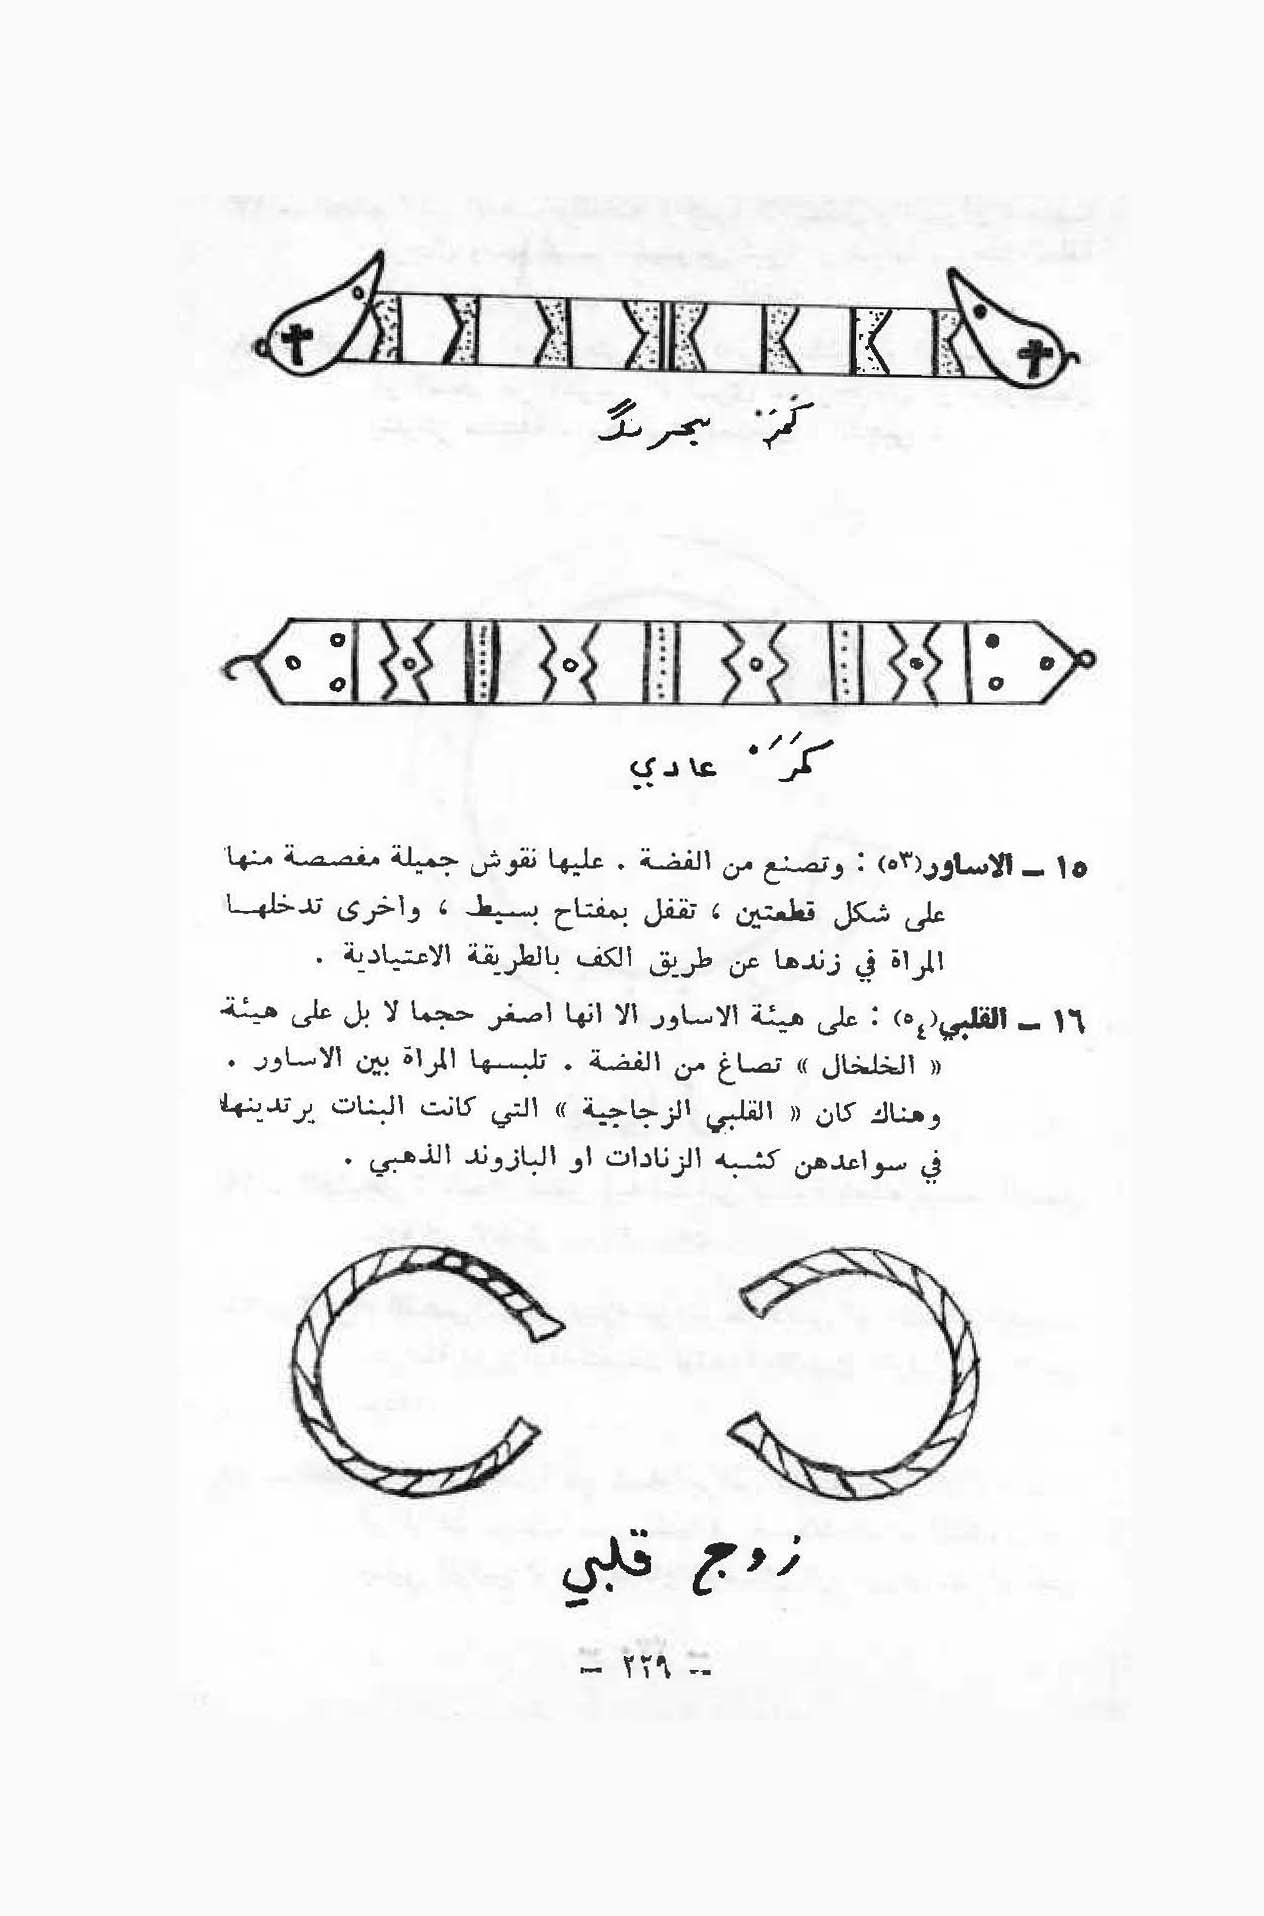 كَمَرْ
كَمَرْ عادي
١٥ – الاساور(٥٣) : وتصنع من الفضة . عليها نقوش جميلة مفصصة منها
على شكل قطعتين ، تقفل بمفتاح بسيط ، واخرى تدخلهـا
المراة في زندها عن طريق الكف بالطريقة الاعتيادية .
١٦ – القلبي(٥٤) : على هيئة الاساور الا انها اصغر حجما لا بل على هيئة
« الخلخال » تصاغ من الفضة . تلبسها المراة بين الاساور .
وهناك كان « القلبي الزجاجية » التي كانت البنات يرتدينها
في سواعدهن كشبه الزنادات او البازوند الذهبي .
زوج قلبي
– ٢٢٩ –